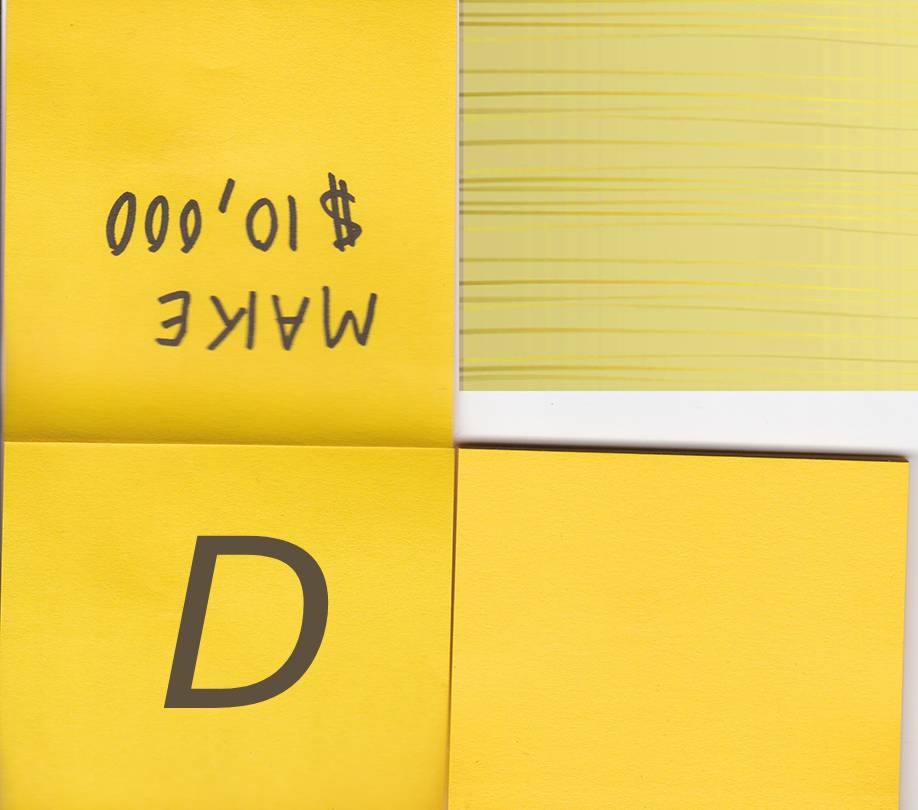 MAKE
$10,000
D